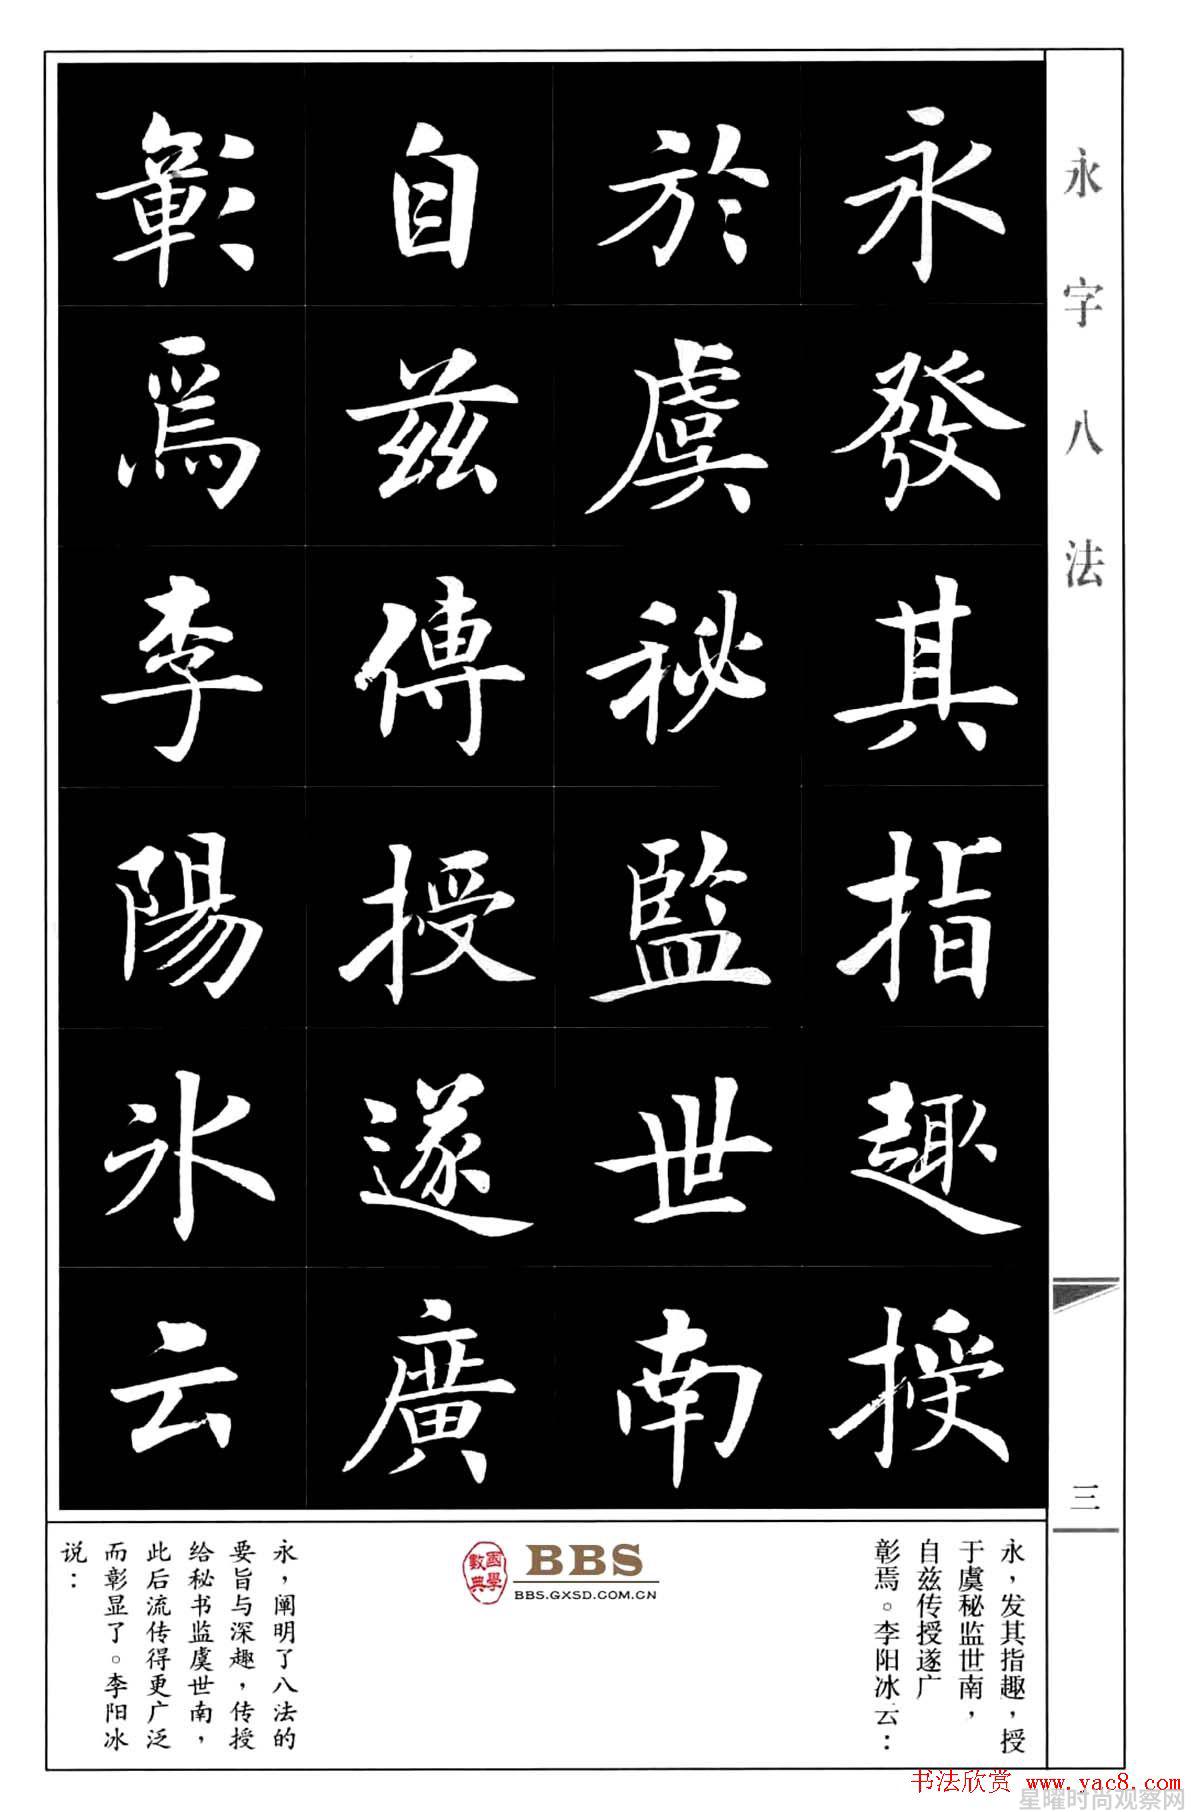 永字八法
三
永發其指趣授
於虞秘監世南
自兹傳授遂廣
彰焉李陽氷云
永，发其指趣，授
于虞秘监世南，
自兹传授遂广
彰焉。李阳冰云：
國學數典
BBS
BBS.GXSD.COM.CN
永，阐明了八法的
要旨与深趣，传授
给秘书监虞世南，
此后流传得更广泛
而彰显了。李阳冰
说：
书法欣赏 www.yac8.com
星曜时尚观察网